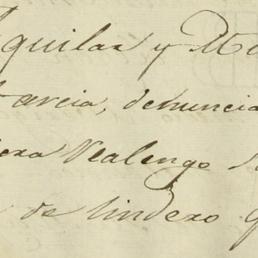 Aguilar y Mo
Garcia, denuncia
Realengo
de lindero q